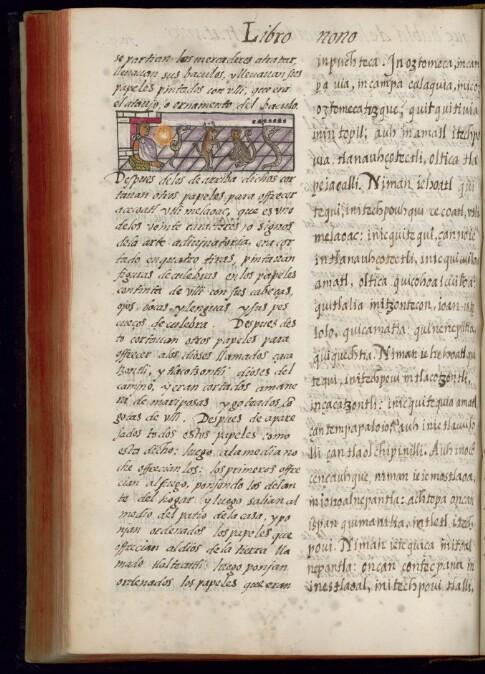 Libro nono
se partian los mercaderes a tratar,
lleuauan sus baculos, y lleuauan sus
papeles pintados con vlli, que era
el atauio, o ornamento del baculo.
Despues de los de arriba dichos cor
tauan otros papeles para offrecer
a ce coatl vtli melaoac, que es vno
de los veinte caracteres o signos
de la arte adiuinatoria, era cor
tado en quatro tiras, pintauan
figuras de culebras en los papeles
con tinta de vlli con sus cabeças,
ojos, bocas y lenguas y sus pes
cueços de culebra Despues des
to cortauan otros papeles para
offrecer a los dioses llamados çaca
tzontli, y tlacotzontli dioses del
camino, y eran cortados a mane
ra de mariposas y goteados de
gotas de vlli. Despues de apare
jados todos estos papeles como
esta dicho: luego a la media no
che offrecian los: los primeros offre
cian al fuego, poniendo los delan
te del hogar y luego salian al
medio del patio de la casa, y po
nian ordenados los papeles que
offrecian al dios de la tierra lla
mado tlaltecutli: luego ponian
ordenados los papeles que eran
in puchteca. In oztomeca, in can
pa via, in campa calaquia, in ic
oztomecatizque, quitquitivia
min topil, auh in amatl itech po
via. tlanauhcotectli, oltica tla
peiaoalli. Niman ie hoatl qui
tequi, in itech pouhqui ce coatl, vtli
melaoac: inic quitequi, çan no ie
in tlanauhcotectli, inic quicuiloa
amatl, oltica quicohoaicuiloa
quitlalia in itzontecon, ioan in ix
tolo, quicamatia. quinenepiltia,
quiquechtia. Niman ie iehoatl qui
tequi, in itech poui in tlacotzontli,
in çacatzontli: inic quitequia amatl
çan tempapaloio, auh inic tlacuilol
li çan tlaolchipinilli. Auh in oc
cencauhque, niman ie ic motlaoa,
in iooalnepantla: achtopa oncan
ispan quimanatia, in tletl itech
poui. Niman ie ic quiça in itoal
nepantla: oncan contecpana in
inextlaoal, in itech poui tlalli,